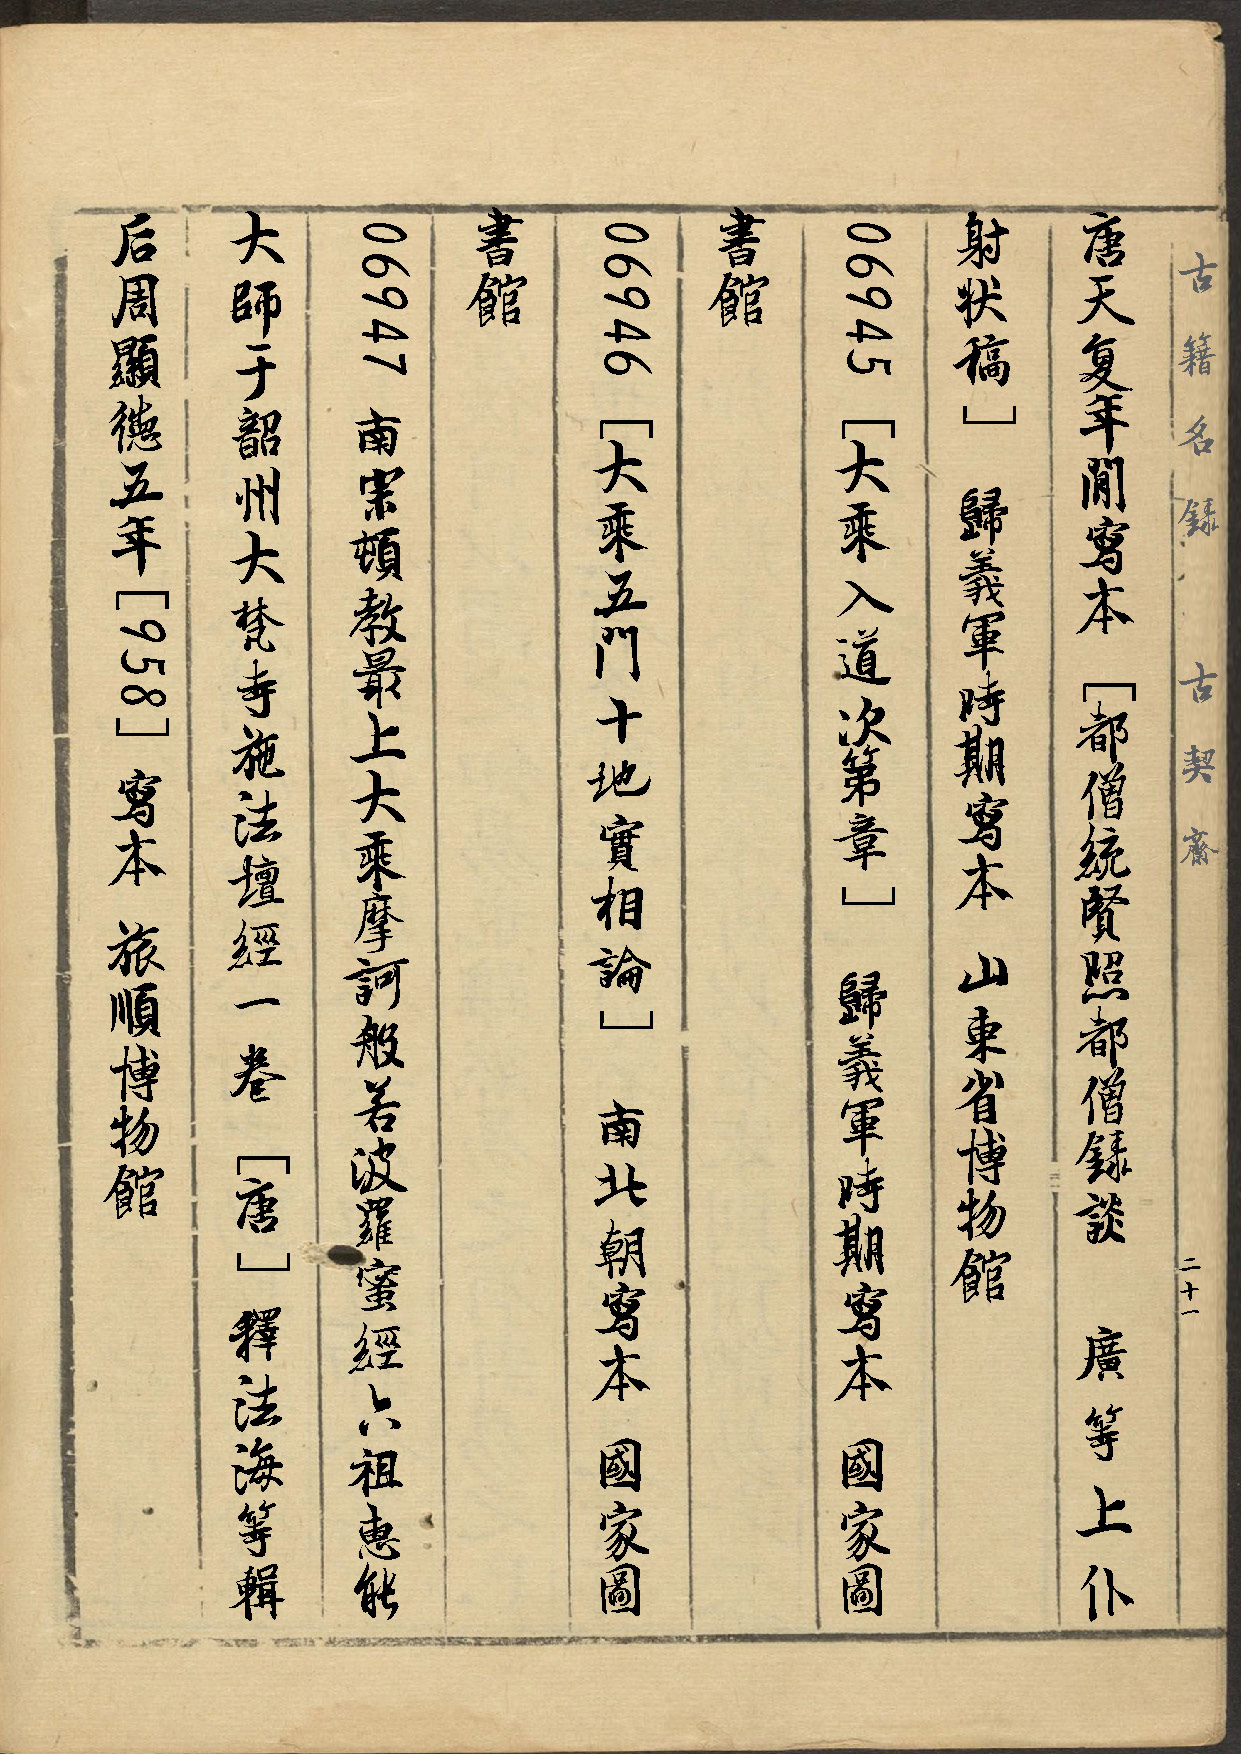 古籍名錄 古契齋 二十一
唐天复年間寫本 [都僧統賢照都僧錄談 廣等上仆
射狀稿] 歸義軍時期寫本 山東省博物館
06945 [大乘入道次第章] 歸義軍時期寫本 國家圖
書館
06946 [大乘五門十地實相論] 南北朝寫本 國家圖
書館
06947 南宗頓教最上大乘摩訶般若波羅蜜經六祖惠能
大師于韶州大梵寺施法壇經一卷 [唐] 釋法海等輯
后周顯德五年[958]寫本 旅順博物館